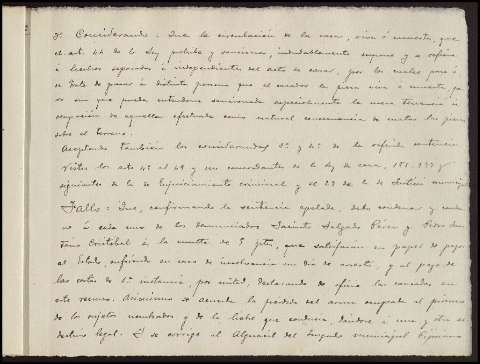 3º Considerando: Que la circulación de la caza, viva ó muerta, que
el art. 44 de la ley prohibe y sanciona, indudablemente supone y se refiere
á hechos separados é independientes del acto de cazar, por los cuales pasa ó
se trate de pasar á distinta persona que el cazador la pieza viva ó muerta, pe
ro sin que pueda entenderse sancionada especialmente la mera tenencia ú
ocupación de aquella efectuada como natural consecuencia de matar la pieza
sobre el terreno.
Aceptando también los considerandos 2º y 4º de la referida sentencia
Vistos los arts 4º al 49 y sus concordantes de la ley de caza,
siguientes de la de Enjuiciamiento criminal y el 29 de la de Justicia municipal
Fallo: Que, confirmando la sentencia apelada, debo condenar y conde
no á cada uno de los denunciados Jacinto Salgado Pérez y Pedro
Cristóbal á la multa de 5 ptas, que satisfarán en papel de pagos
al Estado, sufriendo en caso de insolvencia un día de arresto, y al pago de
las costas de 1ª instancia, por mitad, declarando de oficio las causadas en
este recurso. Asimismo se acuerda la pérdida del arma ocupada al primero
de los sujetos nombrados y de la liebre que conducía, dándose á una y otra su
destino legal. Y se corrige al Alguacil del Juzgado municipal